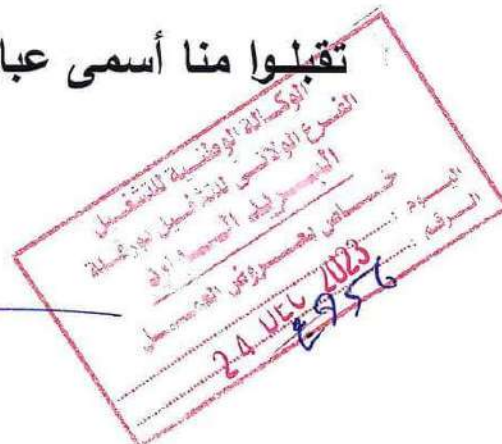 تقبلوا منا أسمى عبا
الوكالة الوطنية للتشغيل
الفرع الولائي للتشغيل بورقلة
البريد الوارد
خاص بعروض العمل
اليوم : 24 DEC 2023
الرقم : 2956